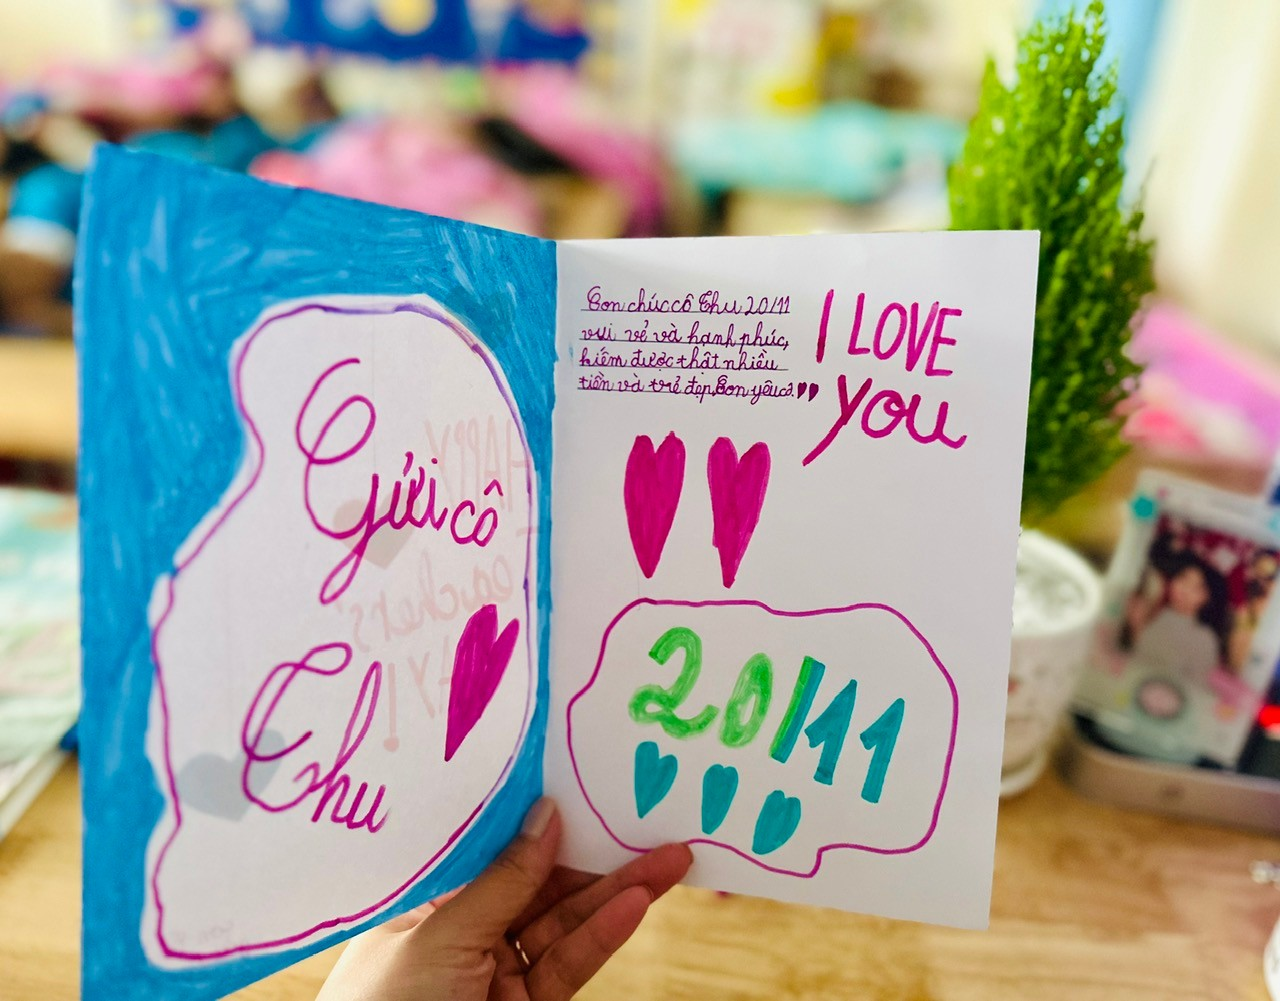 Gửi cô
Thu
Con chúc cô Thu 20/11
vui vẻ và hạnh phúc,
kiếm được thật nhiều
tiền và trẻ đẹp. Con yêu cô.
I LOVE
you
20/11
HAPPY
Teachers'
DAY!